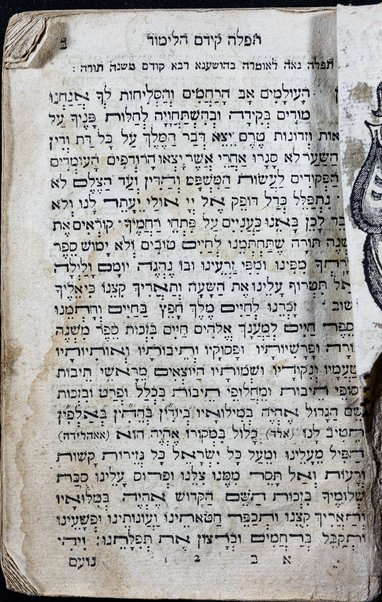 תפלה קודם הלימוד
ב
תפלה נאה לאומרה בהושענא רבא קודם משנה תורה :
העולמים אב הרחמים והסליחות לך אנחנו
מודים בקידה ובהשתחויה לחלות פניך על
וזדונות טרם יצא דבר המלך על כל דת ודין
השער לא סגרו אחרי אשר יצאו הרודפים העומדים
הפקודים לעשות המשפט והדין ועד הצלם לא
נתפלל כדל דופק אל יי אולי יעתר לנו ולא
לכן באנו כעניים על פתחי רחמיך קוראים את
תורה שתחתמנו לחיים טובים ולא ימוש ספר
מפינו ומפי זרעינו ובו נהגה יומם ולילה
תטרוף עלינו את השעה ותאריך קצנו כי אליך
זכרנו לחיים מלך חפץ בחיים וחתמנו
בספר חיים למענך אלהים חיים בזכות ספר משנה
ופרשיותיו ופסוקיו ותיבותיו ואותיותיו
וטעמיו ונקודיו ושמותיו היוצאים מראשי תיבות
וסופי תיבות ומחלופי תיבות בכלל ופרט ובזכות
שם הגדול אהיה במילואיו ביודין בההין באלפין
תטיב לנו (אלד) כלול במקורו אהיה הוא (אאהלידה)
הפיל מעלינו ומעל כל ישראל כל גזירות קשות
ורעות ואל תסר ממנו צלנו ופרוס עלינו סכת
שלומיך בזכות השם הקדוש אהיה במלואיו
ותאריך קצנו ותכפר חטאתינו ועונותינו ופשעינו
ותקבל ברחמים וברצון את תפלתנו: ויהי
א ב 2 נועם